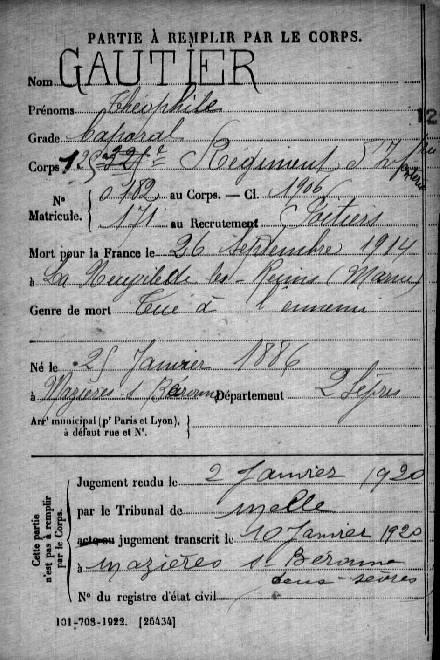 PARTIE À REMPLIR PAR LE CORPS.
Nom GAUTIER
Prénoms Théophile
Grade Caporal
Corps 125 Régiment d'Infrie
N° Matricule. 0182 au Corps. — Cl. 1906
171 au Recrutement Poitiers
Mort pour la France le 26 Septembre 1914
à La Neuvillette les-Reims (Marne)
Genre de mort Tué à l'ennemi
Né le 25 Janvier 1886
à Mazières s Beronne Département 2 Sèvres
Arrt municipal (pr Paris et Lyon), à défaut rue et N°.
Cette partie n'est pas à remplir par le Corps.
Jugement rendu le 2 Janvier 1920
par le Tribunal de Melle
acte ou jugement transcrit le 10 Janvier 1920
à Mazières st Beronne
deux-sèvres
N° du registre d'état civil
101-708-1922. [26434]
12